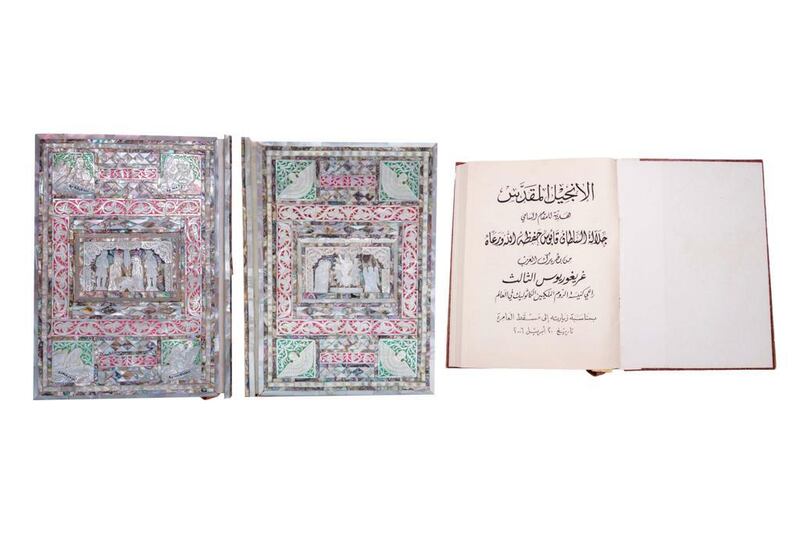 الإنجيل المقدس
هدية للمقام السامي
جلالة السلطان قابوس حفظه الله ورعاه
من بطريرك العرب
غريغوريوس الثالث
راعي كنيسة الروم الملكيين الكاثوليك في العالم
بمناسبة زيارته إلى مسقط العامرة
تاريخ ٢٠ أبريل ٢٠٠٦